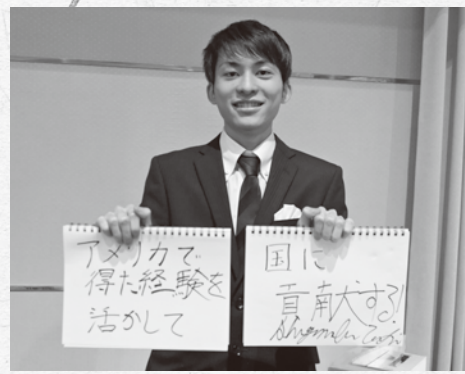 アメリカで
得た経験を
活かして
国に
貢献する!